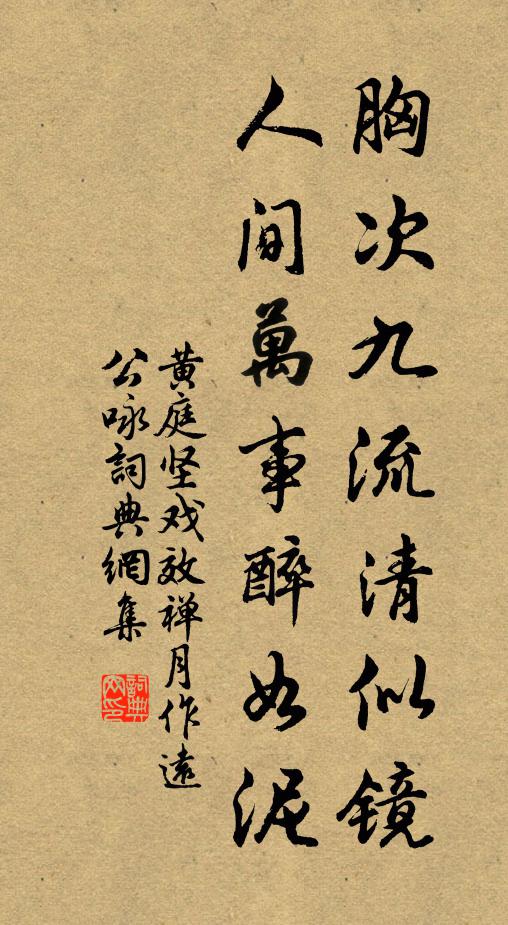 胸次九流清似镜
人间萬事醉如泥
黄庭坚戏效禅月作遠
公咏詞典網集
詞典網印